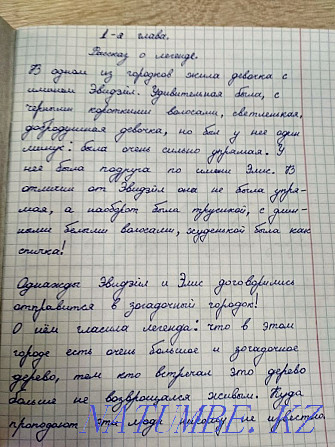 1-я глава.
Рассказ о легенде.
В одном из городков жила девочка с
именем Эвидзёил. Удивительная была, с
черными короткими волосами, светленькая,
добродушная девочка, но был у нее один
минус: была очень сильно упрямая. У
нее была подруга по имени Элис. В
отличии от Эвидзёил она не была упря-
мая, а наоборот была трусихой, с длин-
ными белыми волосами, худенькой была как
спичка!
Однажды Эвидзёил и Элис договорились
отправится в загадочный городок!
О нём гласила легенда: что в этом
городе есть очень большое и загадочное
дерево, тем кто встречал это дерево
больше не возвращался живым. Куда
проподают эти люди никому не известно.
NATUMBE.KZ